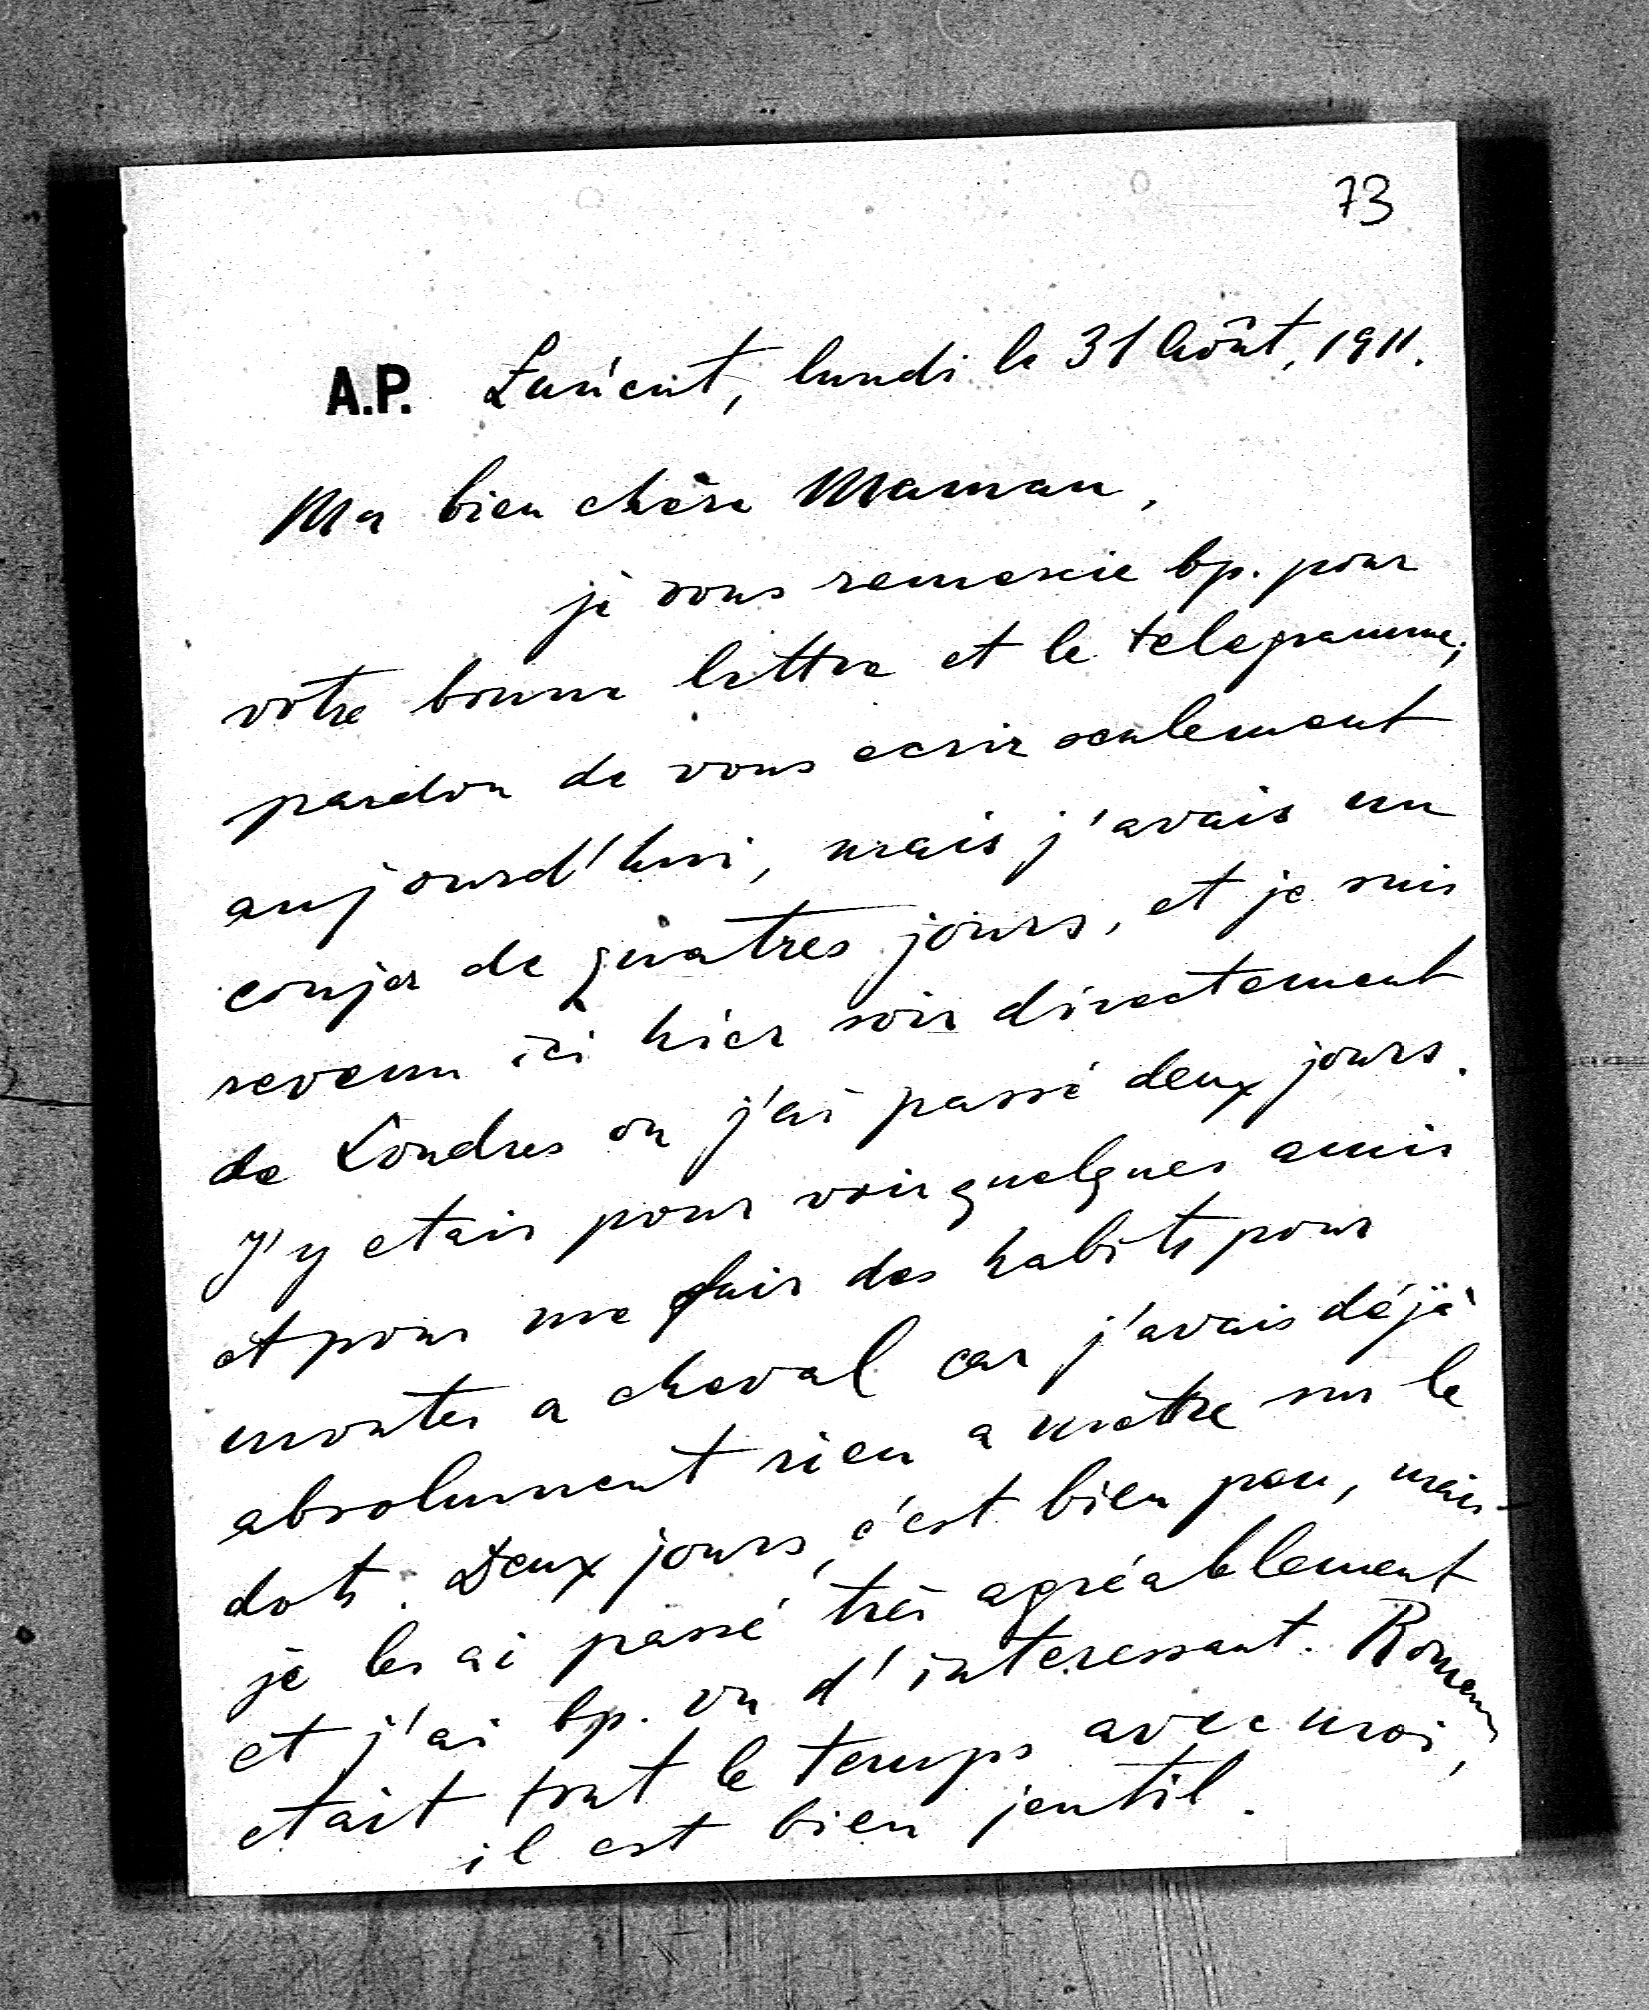 73
A.P. Lorient, lundi le 31 Août, 1911.
Ma bien chère Maman,
je vous remercie bp. pour
votre bonne lettre et le telegramme;
pardon de vous ecrir seulement
aujourd'hui, mais j'avais un
conjer de quatres jours, et je suis
revenu ici hier soir directement
de Londres ou j'ai passé deux jours.
J'y etais pour voir quelques amis
et pour me fair des habits pour
monter a cheval car j'avais déjà
absolument rien a mètre sur le
dots. Deux jours, c'est bien peu, mais
je les ai passé très agréablement
et j'ai bp. vu d'interessant. Roman
etait tout le temps avec moi,
il est bien jentil.